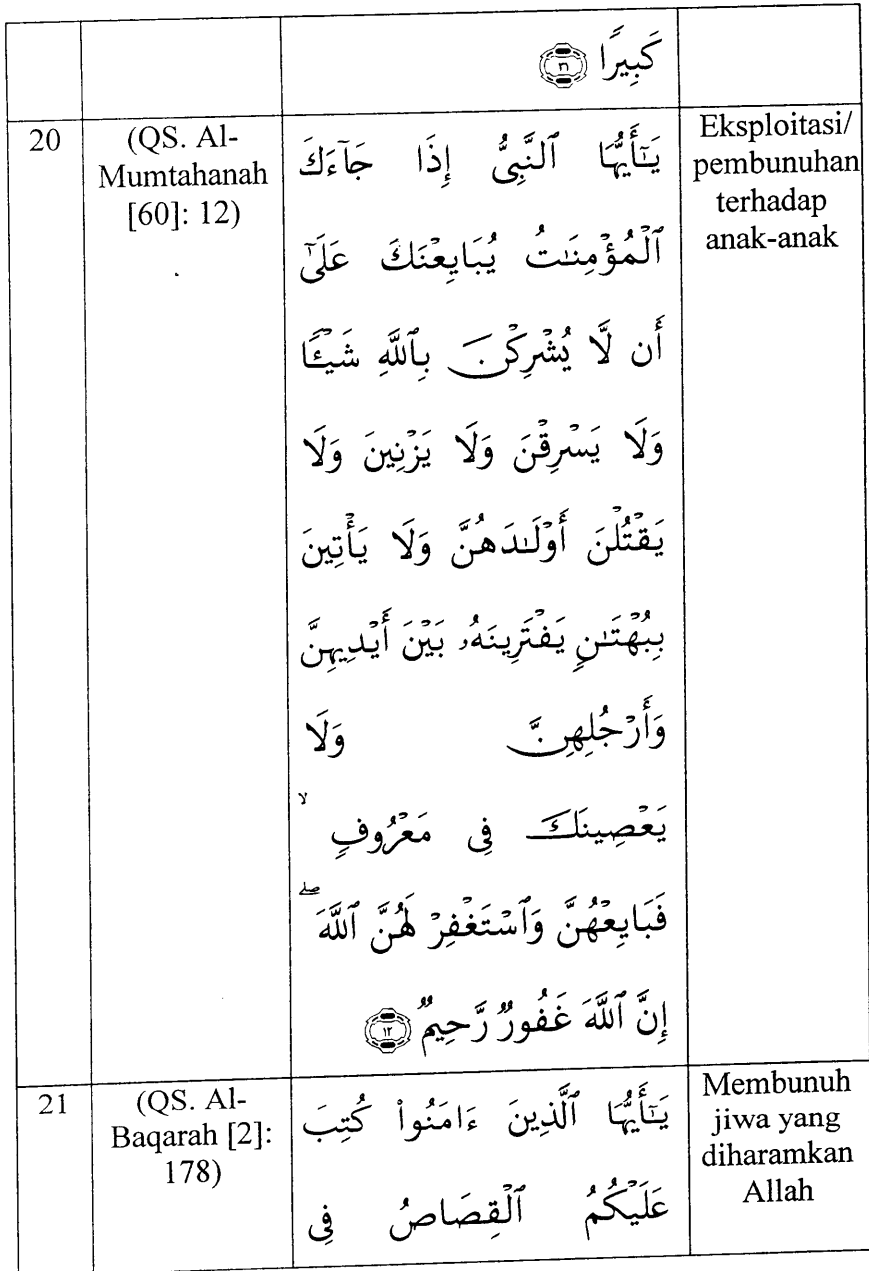 كَبِيرًا ٣١
20
(QS. Al-
Mumtahanah
[60]: 12)
يَـٰٓأَيُّهَا ٱلنَّبِىُّ إِذَا جَآءَكَ
ٱلْمُؤْمِنَـٰتُ يُبَايِعْنَكَ عَلَىٰٓ
أَن لَّا يُشْرِكْنَ بِٱللَّهِ شَيْـًٔا
وَلَا يَسْرِقْنَ وَلَا يَزْنِينَ وَلَا
يَقْتُلْنَ أَوْلَـٰدَهُنَّ وَلَا يَأْتِينَ
بِبُهْتَـٰنٍ يَفْتَرِينَهُۥ بَيْنَ أَيْدِيهِنَّ
وَأَرْجُلِهِنَّ وَلَا
يَعْصِينَكَ فِى مَعْرُوفٍ ۙ
فَبَايِعْهُنَّ وَٱسْتَغْفِرْ لَهُنَّ ٱللَّهَ ۖ
إِنَّ ٱللَّهَ غَفُورٌ رَّحِيمٌ ١٢
Eksploitasi/
pembunuhan
terhadap
anak-anak
21
(QS. Al-
Baqarah [2]:
178)
يَـٰٓأَيُّهَا ٱلَّذِينَ ءَامَنُوا۟ كُتِبَ
عَلَيْكُمُ ٱلْقِصَاصُ فِى
Membunuh
jiwa yang
diharamkan
Allah